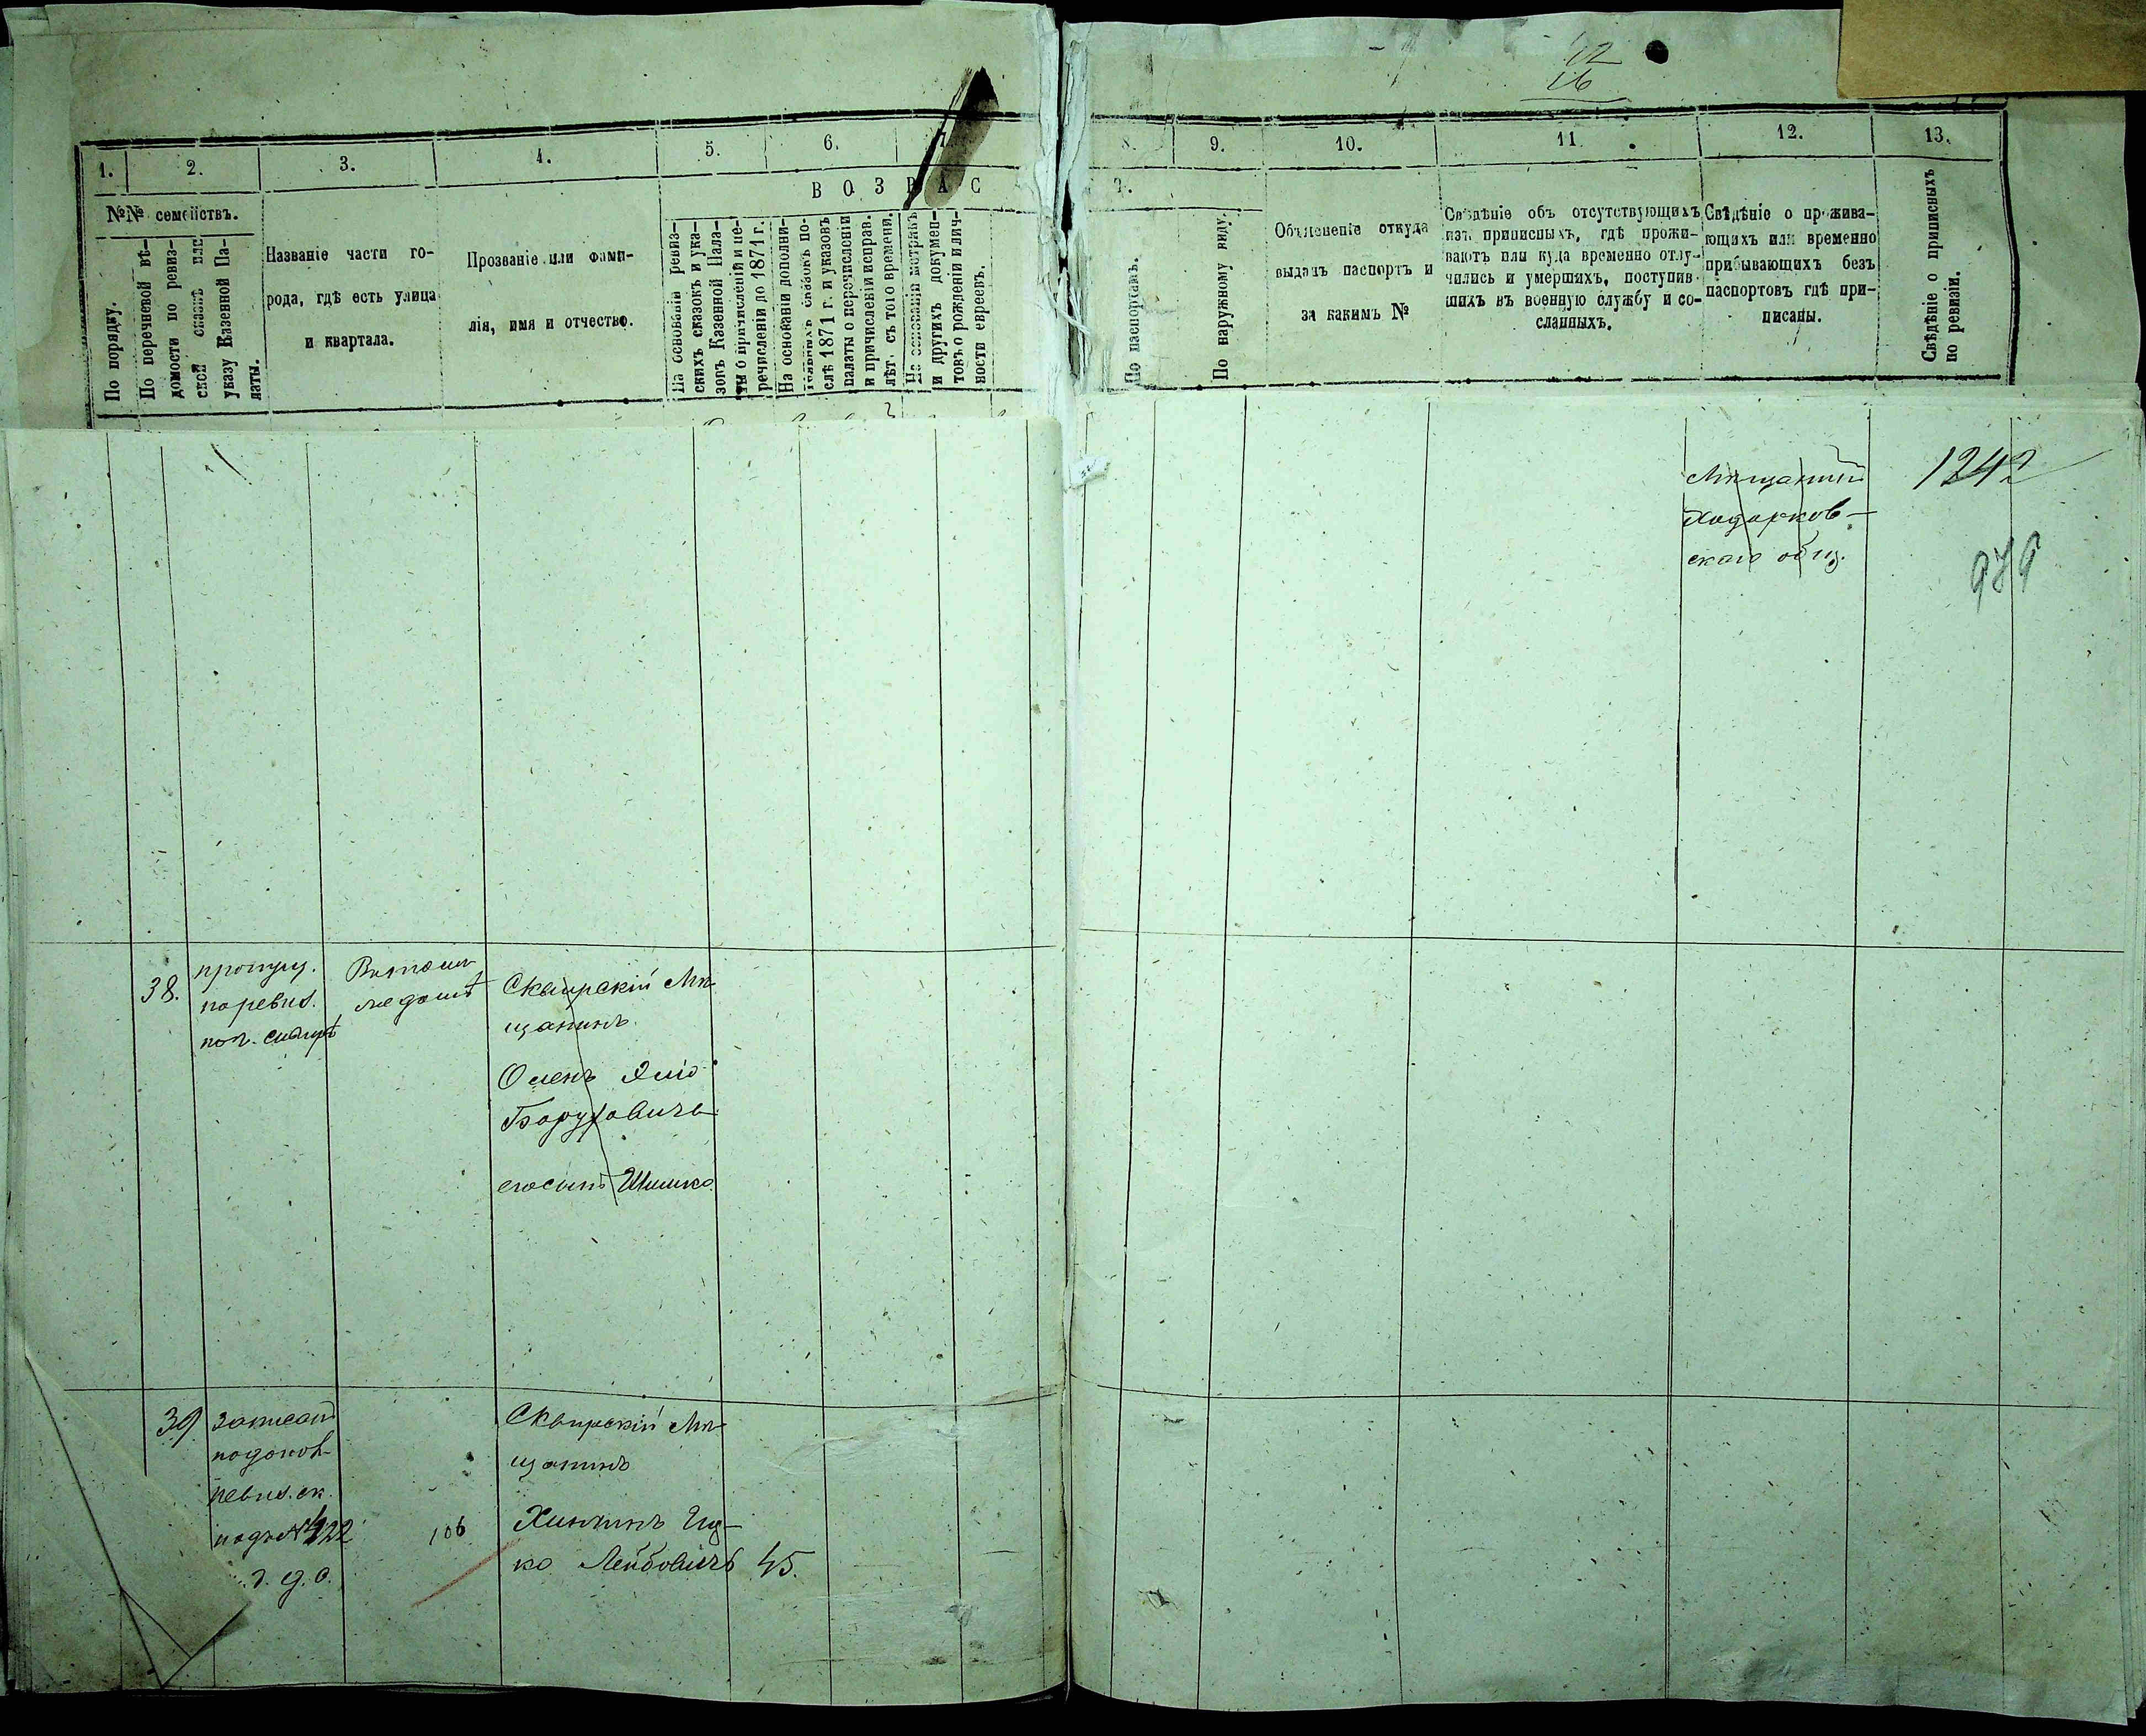 12
16
1.
2.
3.
4.
5.
6.
7.
8.
9.
10.
11.
12.
13.
ВОЗРАС
Т.
№№ семействъ.
По порядку.
По перечневой вѣ-
домости по ревиз-
ской сказкѣ или
указу Казенной Па-
латы.
Названіе части го-
рода, гдѣ есть улица
и квартала.
Прозваніе или фами-
лія, имя и отчество.
На основаніи ревиз-
скихъ сказокъ и ука-
зовъ Казенной Пала-
ты о причисленіи и пе-
речисленіи до 1871 г.
На основаніи дополни-
тельныхъ сказокъ по-
слѣ 1871 г. и указовъ
палаты о перечисленіи
и причисленіи исправ.
лѣт. съ того времени.
На основаніи метрикъ
и другихъ докумен-
товъ о рожденіи и лич-
ности евреевъ.
По паспортамъ.
По наружному виду.
Объясненіе откуда
выданъ паспортъ и
за какимъ №
Свѣдѣніе объ отсутствующихъ
изъ приписныхъ, гдѣ прожи-
ваютъ или куда временно отлу-
чились и умершихъ, поступив-
шихъ въ военную службу и со-
сланныхъ.
Свѣдѣніе о прожива-
ющихъ или временно
прибывающихъ безъ
паспортовъ гдѣ при-
писаны.
Свѣдѣніе о приписныхъ
по ревизіи.
Мѣщанинъ
Ходорков-
скаго общ.
1242
979
38.
по ревиз.
Сквирскій Мѣ-
щанинъ
Боруховичъ
его сынъ Шимко
39
записанъ
ревиз. ск.
подъ № 422
106
Сквирскій Мѣ-
щанинъ
Хинчинъ Иц-
ко Лейбовичъ 45.